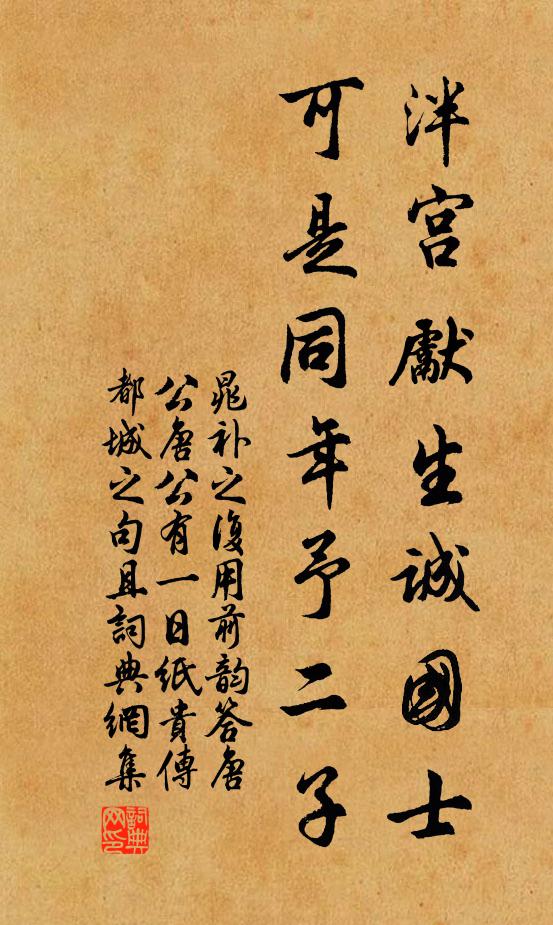 泮宮獻生誠國士
可是同年予二子
晁补之復用前韵答唐
公唐公有一日紙貴傳
都城之句且詞典網集
詞典网印